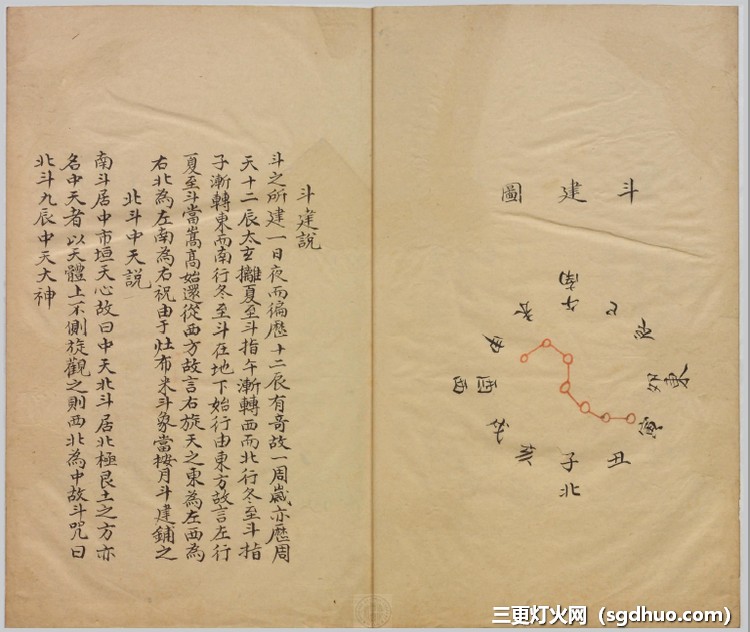 斗建圖
南午
巳
辰
東卯
寅
丑
子
北
亥
戌
酉西
申
未
斗建說
斗之所建一日夜而徧歷十二辰有竒故一周歲亦歷周
天十二辰太玄攡夏至斗指午漸轉西而北行冬至斗指
子漸轉東而南行冬至斗在地下始行由東方故言左行
夏至斗當嵩高始還從西方故言右旋天之東為左西為
右北為左南為右祝由于灶布米斗象當按月斗建鋪之
北斗中天說
南斗居中市垣天心故曰中天北斗居北極艮土之方亦
名中天者以天體上不側旋觀之則西北為中故斗咒曰
北斗九辰中天大神
三更灯火网（sgdhuo.com）